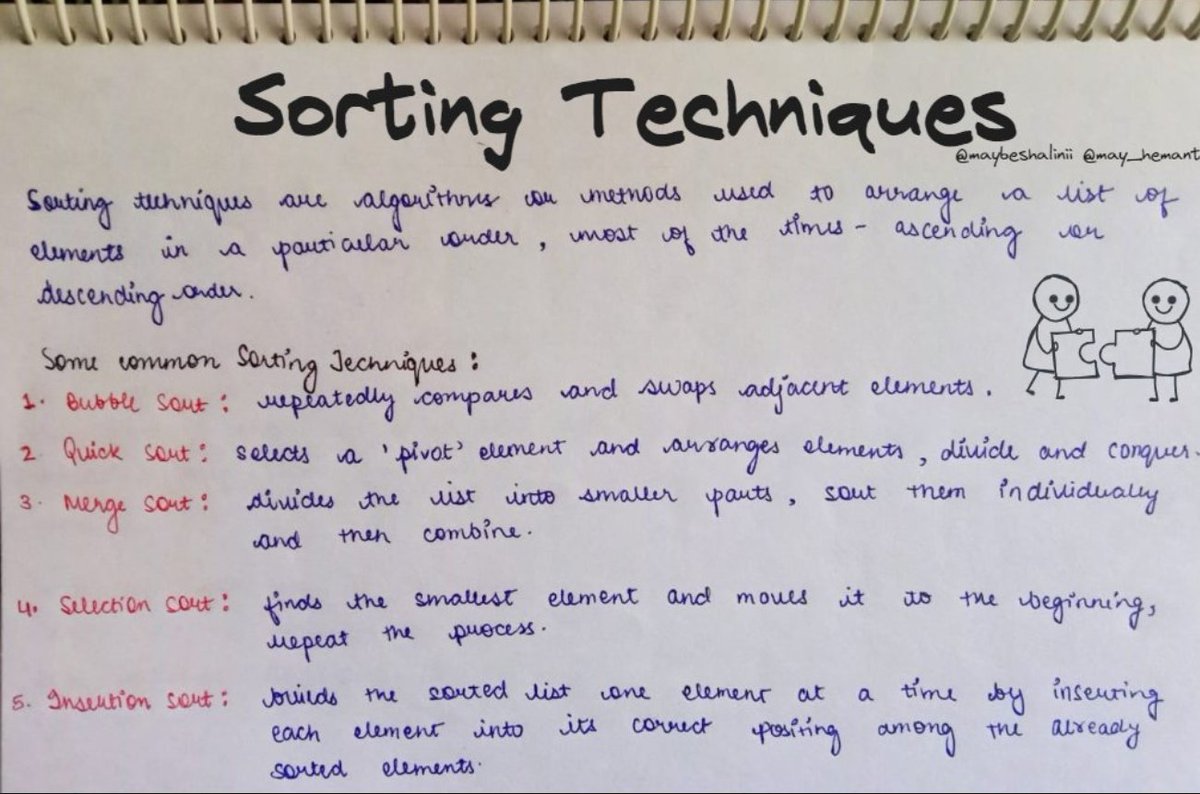 Sorting Techniques
@maybeshalinii @may_hemant
Sorting techniques are algorithms or methods used to arrange a list of
elements in a particular order, most of the times - ascending or
descending order.
Some common Sorting Techniques:
1. Bubble sort: repeatedly compares and swaps adjacent elements.
2 Quick sort: selects a 'pivot' element and arranges elements, divide and conquer.
3. Merge sort: divides the list into smaller parts, sort them individually
and then combine.
4. Selection sort: finds the smallest element and moves it to the beginning,
repeat the process.
5. Insertion sort: builds the sorted list one element at a time by inserting
each element into its correct positing among the already
sorted elements.